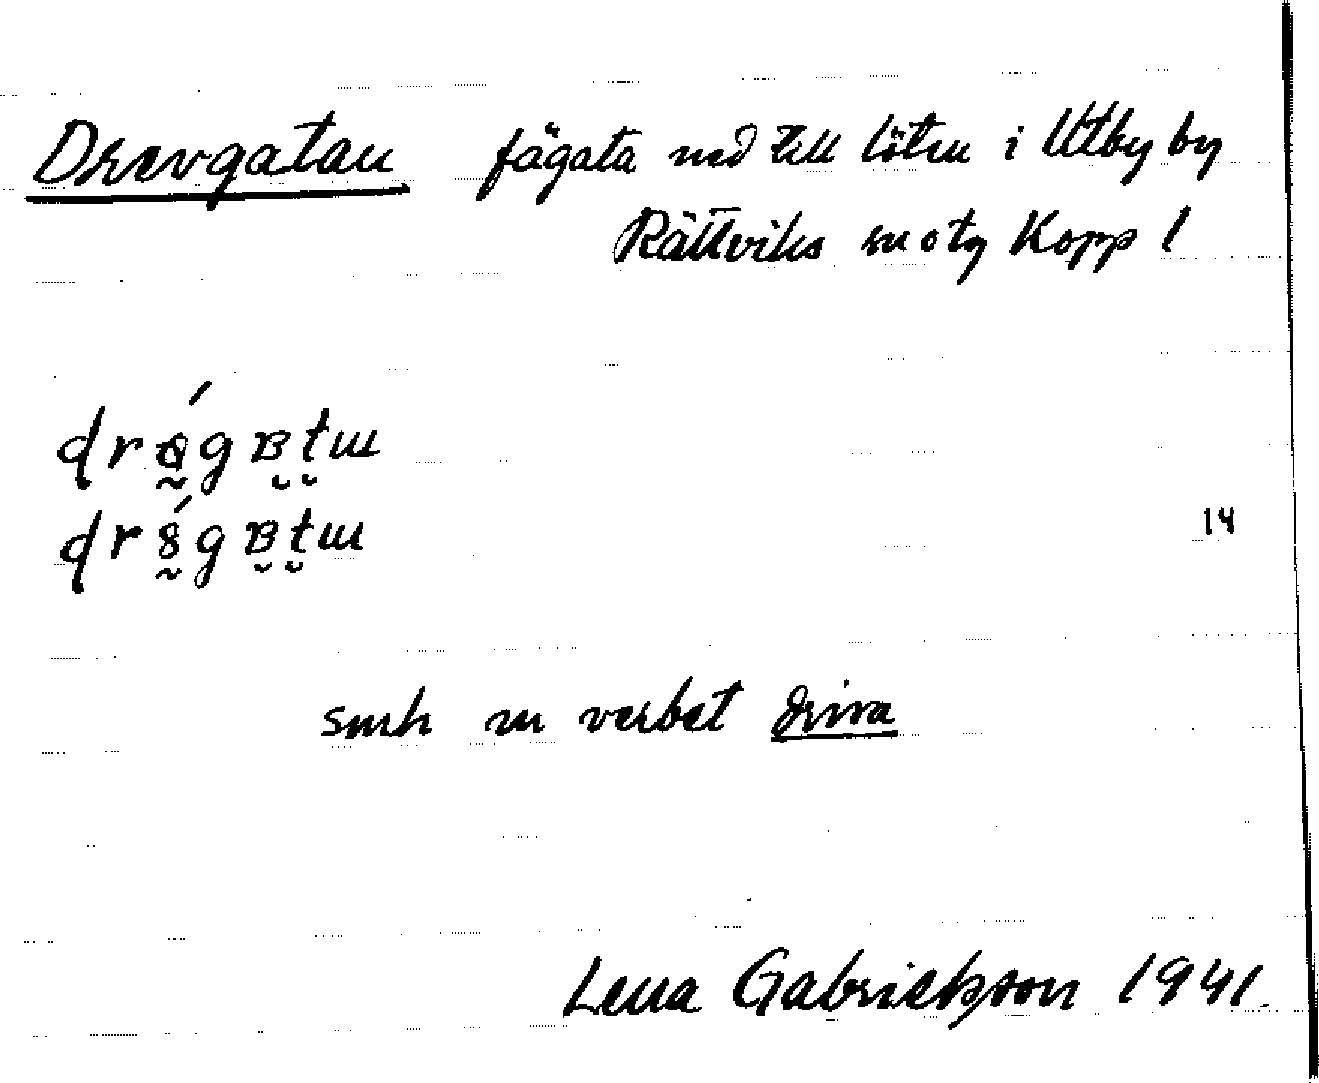 Drevgatan fägata ned till löten i Utby by
Rättviks sn otg Kopp l
14
smh m verbet driva
Lena Gabrielsson 1941